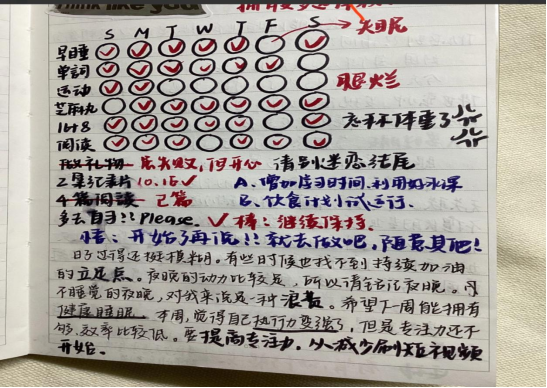 Think like you
S M T W T F S
失眠
早睡
单词
运动
腿烂
芝麻执
1618
怎样体重了
阅读
做礼物 虽失败，但开心 请别迷恋结尾
2集纪录片 10.16 ✓ A. 增加学习时间.利用好水课
4篇阅读 已篇 B. 饮食计划小试运行.
多去自习!! Please. ✓ 棒：继续保持.
悟：开始了再说!! 就去做吧，随君其他!
日子过得还挺模糊。有些时候也找不到持续加油
的立足点。夜晚的动力比较足，所以请铭记夜晚。
不睡觉的夜晚，对我来说是一种浪费。希望下一周能拥有
健康睡眠 本周，觉得自己执行力变强了，但是专注力还不
够.效率比较低。要提高专注力，从减少刷短视频
开始.